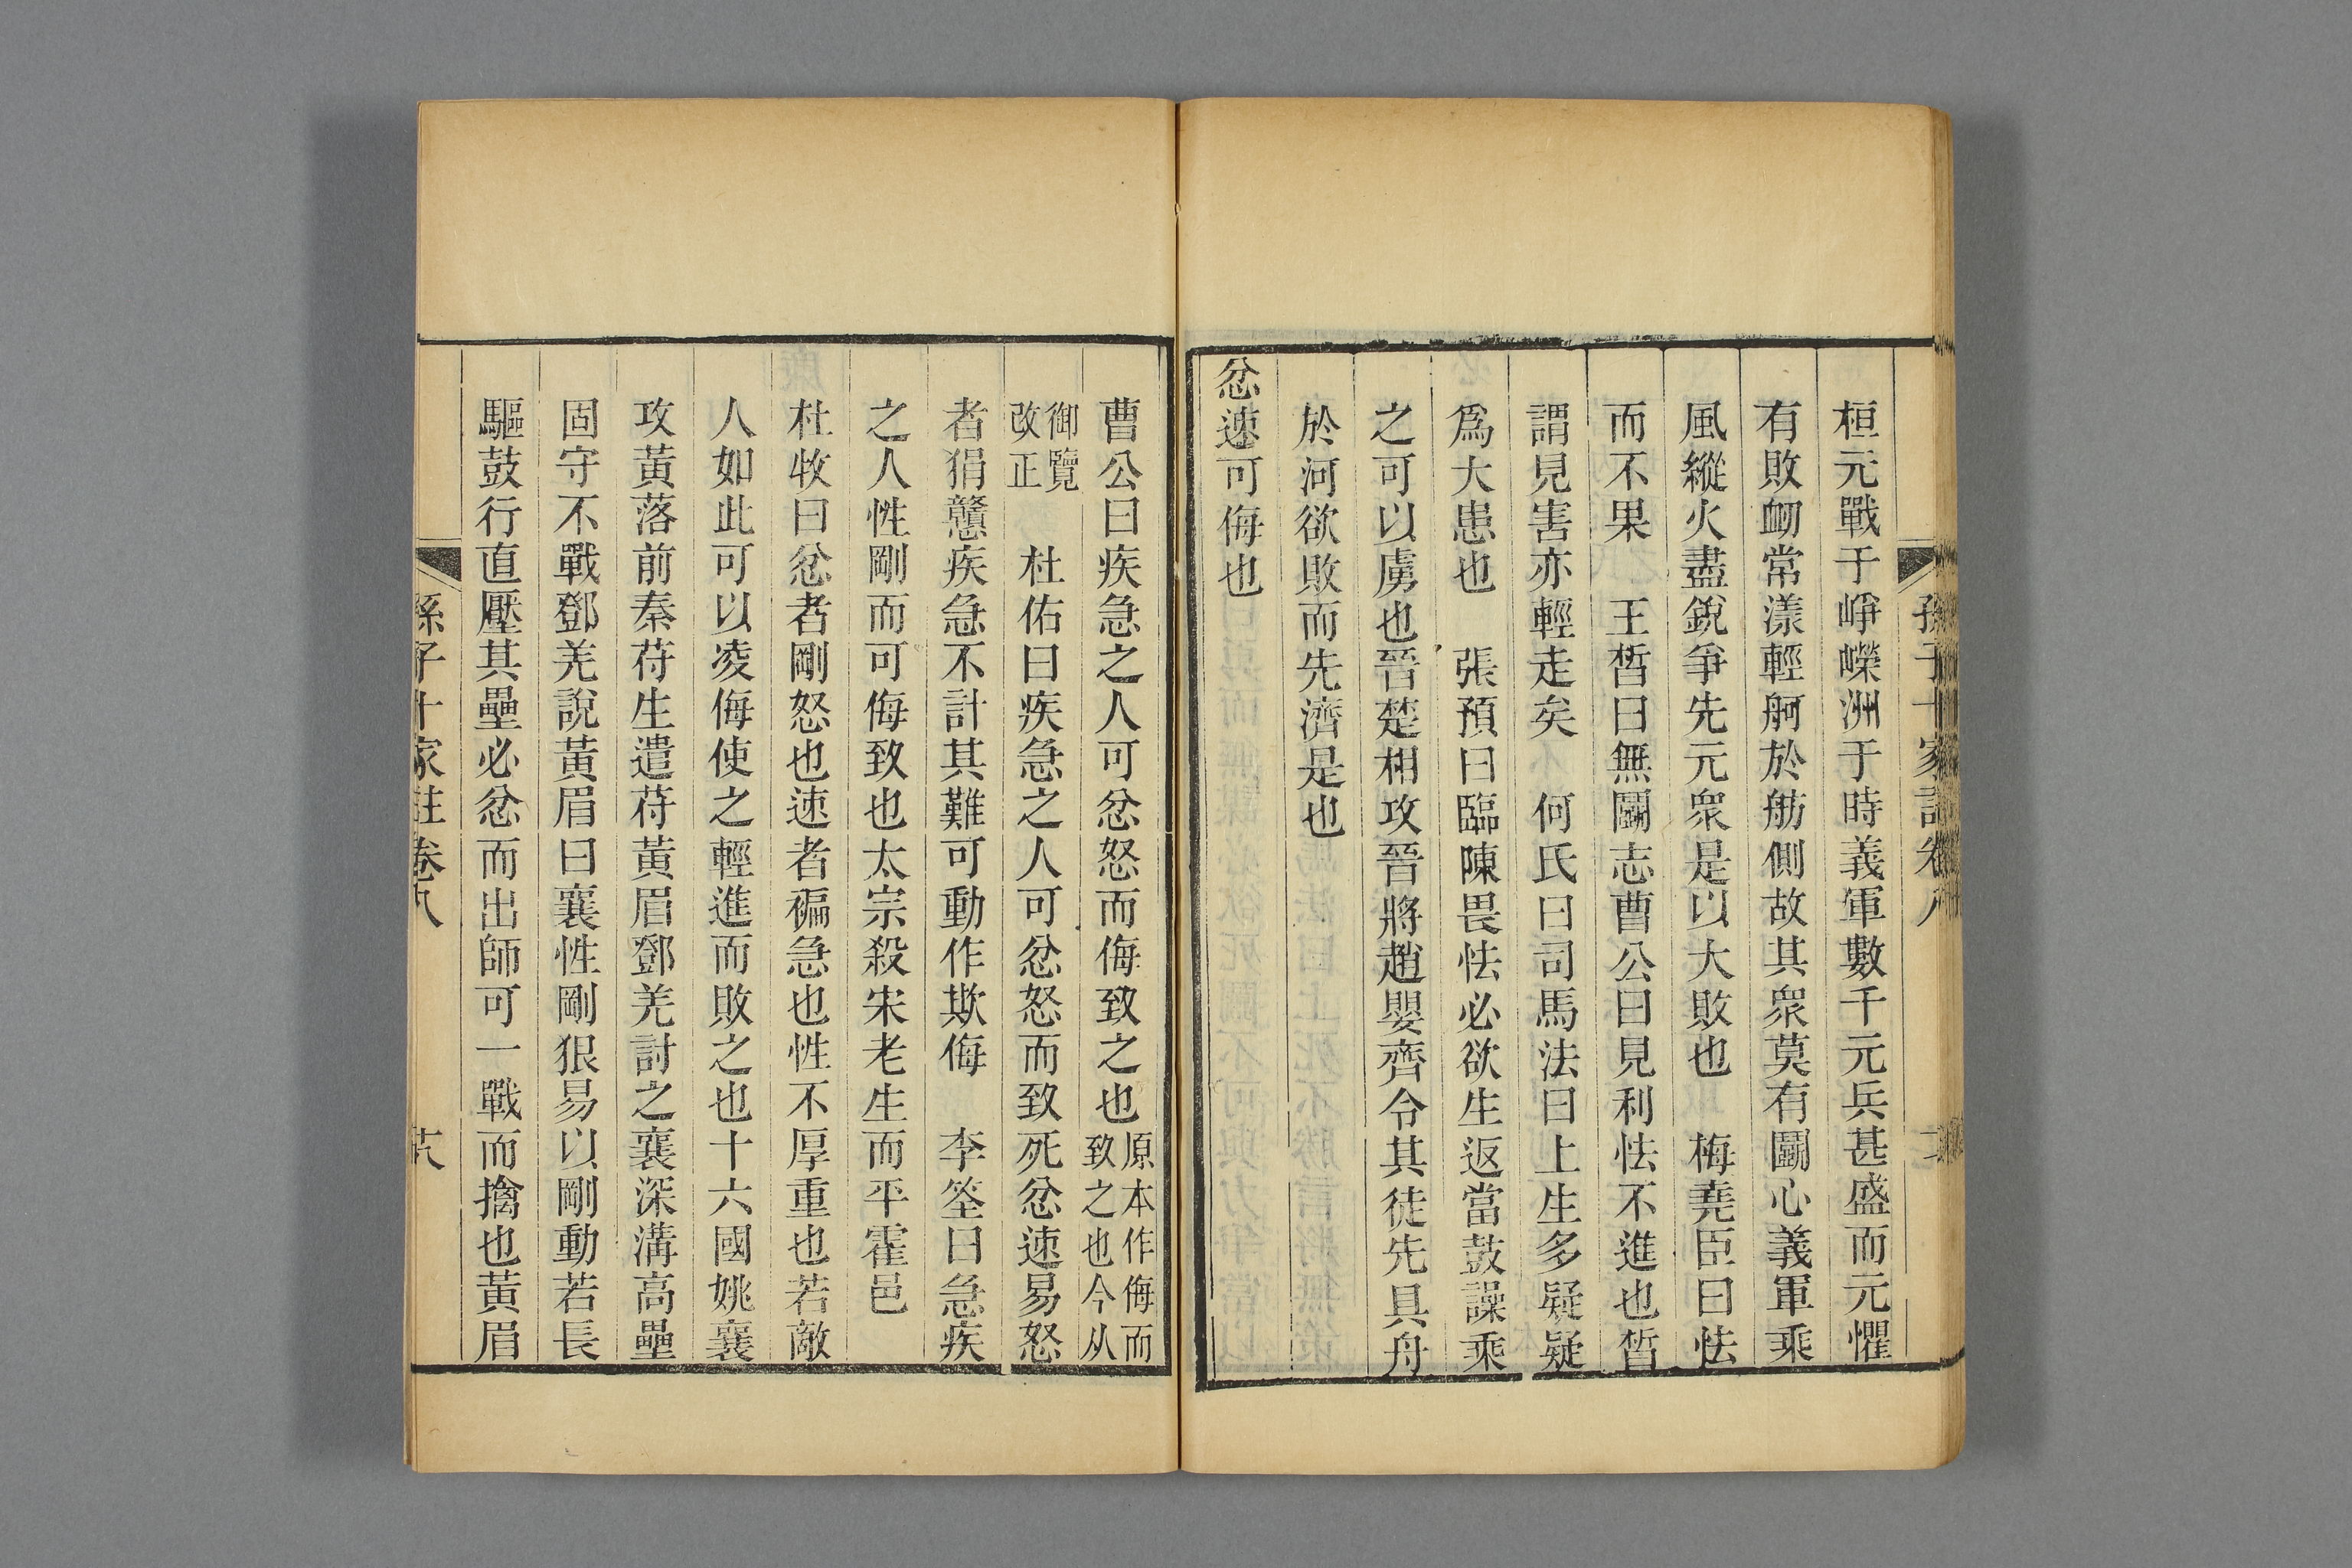 孫子十家註卷八
桓元戰于崢嶸洲于時義軍數千元兵甚盛而元懼
有敗衂常漾輕舸於舫側故其衆莫有鬭心義軍乘
風縱火盡銳爭先元衆是以大敗也 梅堯臣曰怯
而不果 王晳曰無鬭志曹公曰見利怯不進也晳
謂見害亦輕走矣 何氏曰司馬法曰上生多疑疑
爲大患也 張預曰臨陳畏怯必欲生返當鼓譟乘
之可以虜也晉楚相攻晉將趙嬰齊令其徒先具舟
於河欲敗而先濟是也
忿速可侮也
曹公曰疾急之人可忿怒而侮致之也原本作侮而致之也今从
御覽改正 杜佑曰疾急之人可忿怒而致死忿速易怒
者狷戇疾急不計其難可動作欺侮 李筌曰急疾
之人性剛而可侮致也太宗殺宋老生而平霍邑
杜牧曰忿者剛怒也速者褊急也性不厚重也若敵
人如此可以凌侮使之輕進而敗之也十六國姚襄
攻黃落前秦苻生遣苻黃眉鄧羌討之襄深溝高壘
固守不戰鄧羌說黃眉曰襄性剛狠易以剛動若長
驅鼓行直壓其壘必忿而出師可一戰而擒也黃眉
孫子十家註卷八